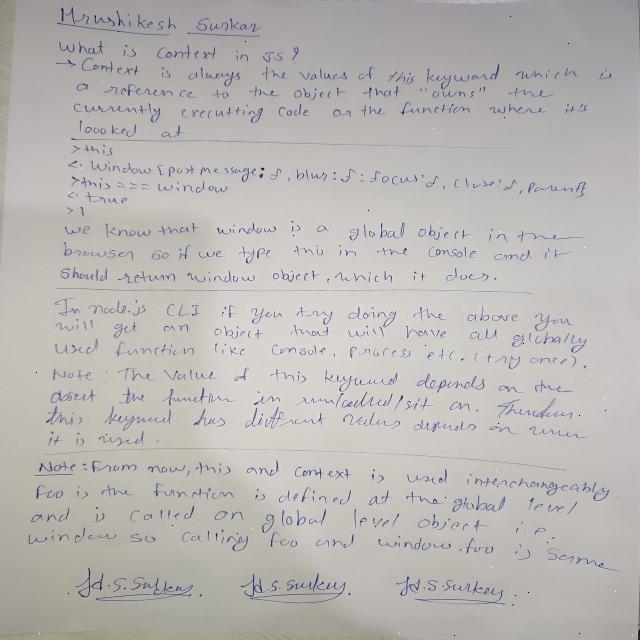 Hrushikesh Surkar
What is Context in JS?
→ Context is always the values of this keyword which is
a reference to the object that "owns" the
currently executting code or the function where it's
loooked at.
> this
<. Window {postmessage: f, blur: f: focus: f, close: f, Parent}
> this === window
< true
> 1
we know that window is a global object in the
browser so if we type this in the console and it
should return window object, which it does.
In node.js CLI if you try doing the above you
will get an object that will have all globally
used function like console, process etc. (try once).
Note: The Value of this keyword depends on the
object the function in run/called/sit on. Therefore
this keyword has diffrent values depends on
it is used.
Note: From now, this and context is used interchangeably
foo is the function is defined at the global level
and is called on global level object i.e.
window so calling foo and window.foo is Same
Hd.S.Surkey.
Hd.S.Surkey.
Hd.S.Surkey.